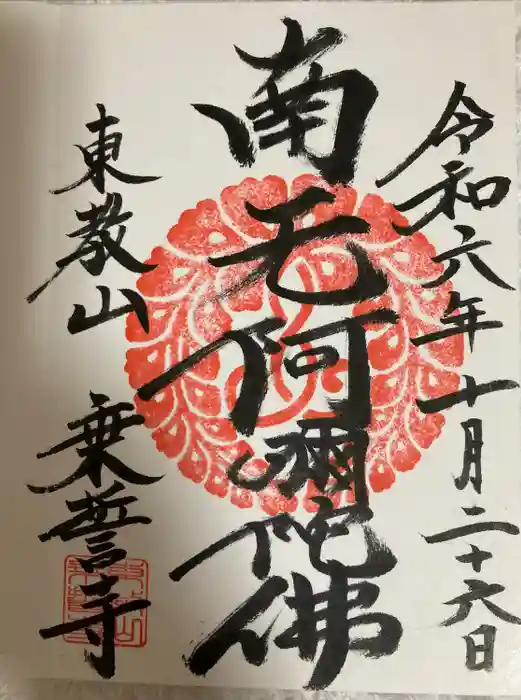 令和六年十月二十六日
南无阿彌陀佛
東教山 乗誓寺